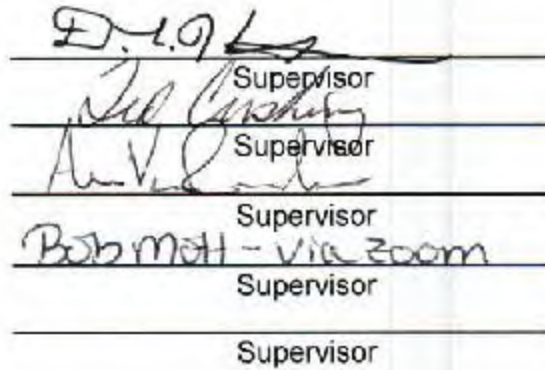 Supervisor
Ted Cushing
Supervisor
Supervisor
Bob Mott - via zoom
Supervisor
Supervisor